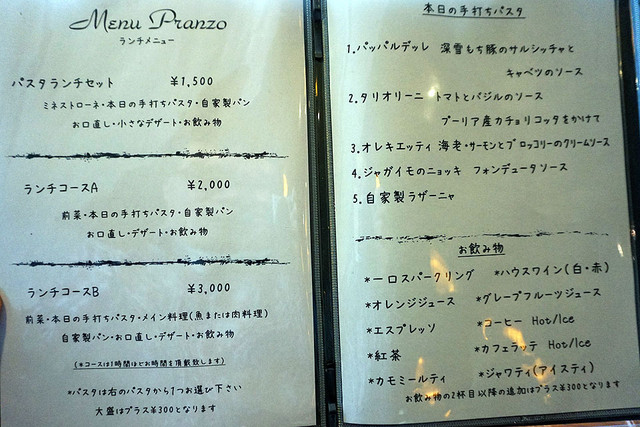 Menu Pranzo
ランチメニュー
パスタランチセット ¥1,500
ミネストローネ・本日の手打ちパスタ・自家製パン
お口直し・小さなデザート・お飲み物
ランチコースA ¥2,000
前菜・本日の手打ちパスタ・自家製パン
お口直し・デザート・お飲み物
ランチコースB ¥3,000
前菜・本日の手打ちパスタ・メイン料理(魚または肉料理)
自家製パン・お口直し・デザート・お飲み物
(*コースは1時間ほどお時間を頂戴致します)
*パスタは右のパスタから1つお選び下さい
大盛はプラス¥300となります
本日の手打ちパスタ
1.パッパルデッレ 深雪もち豚のサルシッチャと
キャベツのソース
2.タリオリーニ トマトとバジルのソース
プーリア産カチョリコッタをかけて
3.オレキエッティ 海老・サーモンとブロッコリーのクリームソース
4.ジャガイモのニョッキ フォンデュータソース
5.自家製ラザーニャ
お飲み物
*一口スパークリング *ハウスワイン(白・赤)
*オレンジジュース *グレープフルーツジュース
*エスプレッソ *コーヒー Hot/Ice
*紅茶 *カフェラッテ Hot/Ice
*カモミールティ *ジャワティ(アイスティ)
お飲み物の2杯目以降の追加はプラス¥300となります